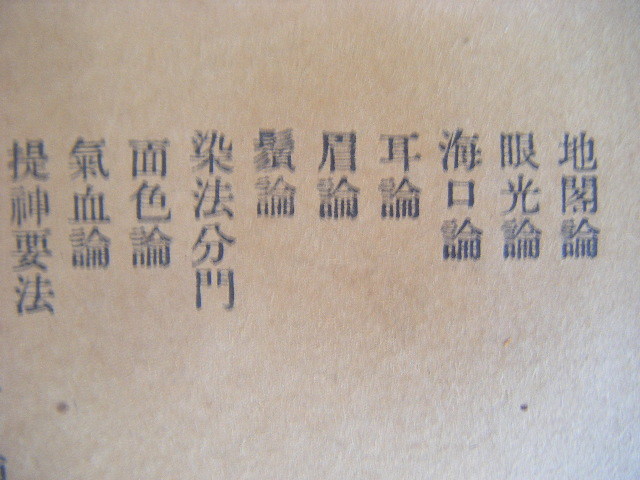 地閣論
眼光論
海口論
耳論
眉論
鬚論
染法分門
面色論
氣血論
提神要法